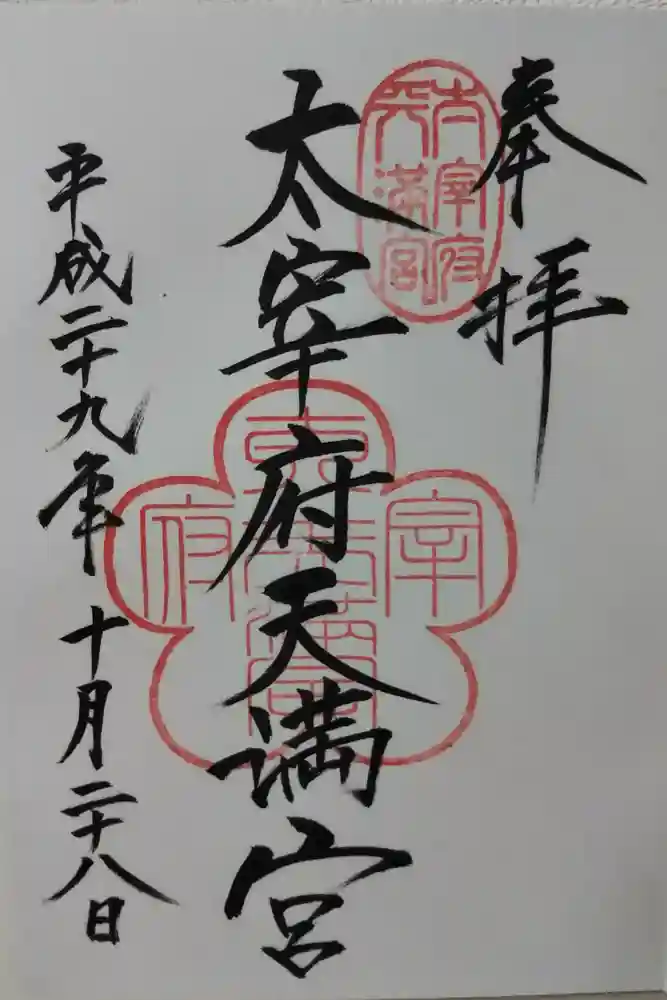 奉拝
太宰府天満宮
太宰府天満宮
平成二十九年 十月二十八日
太宰府天満宮